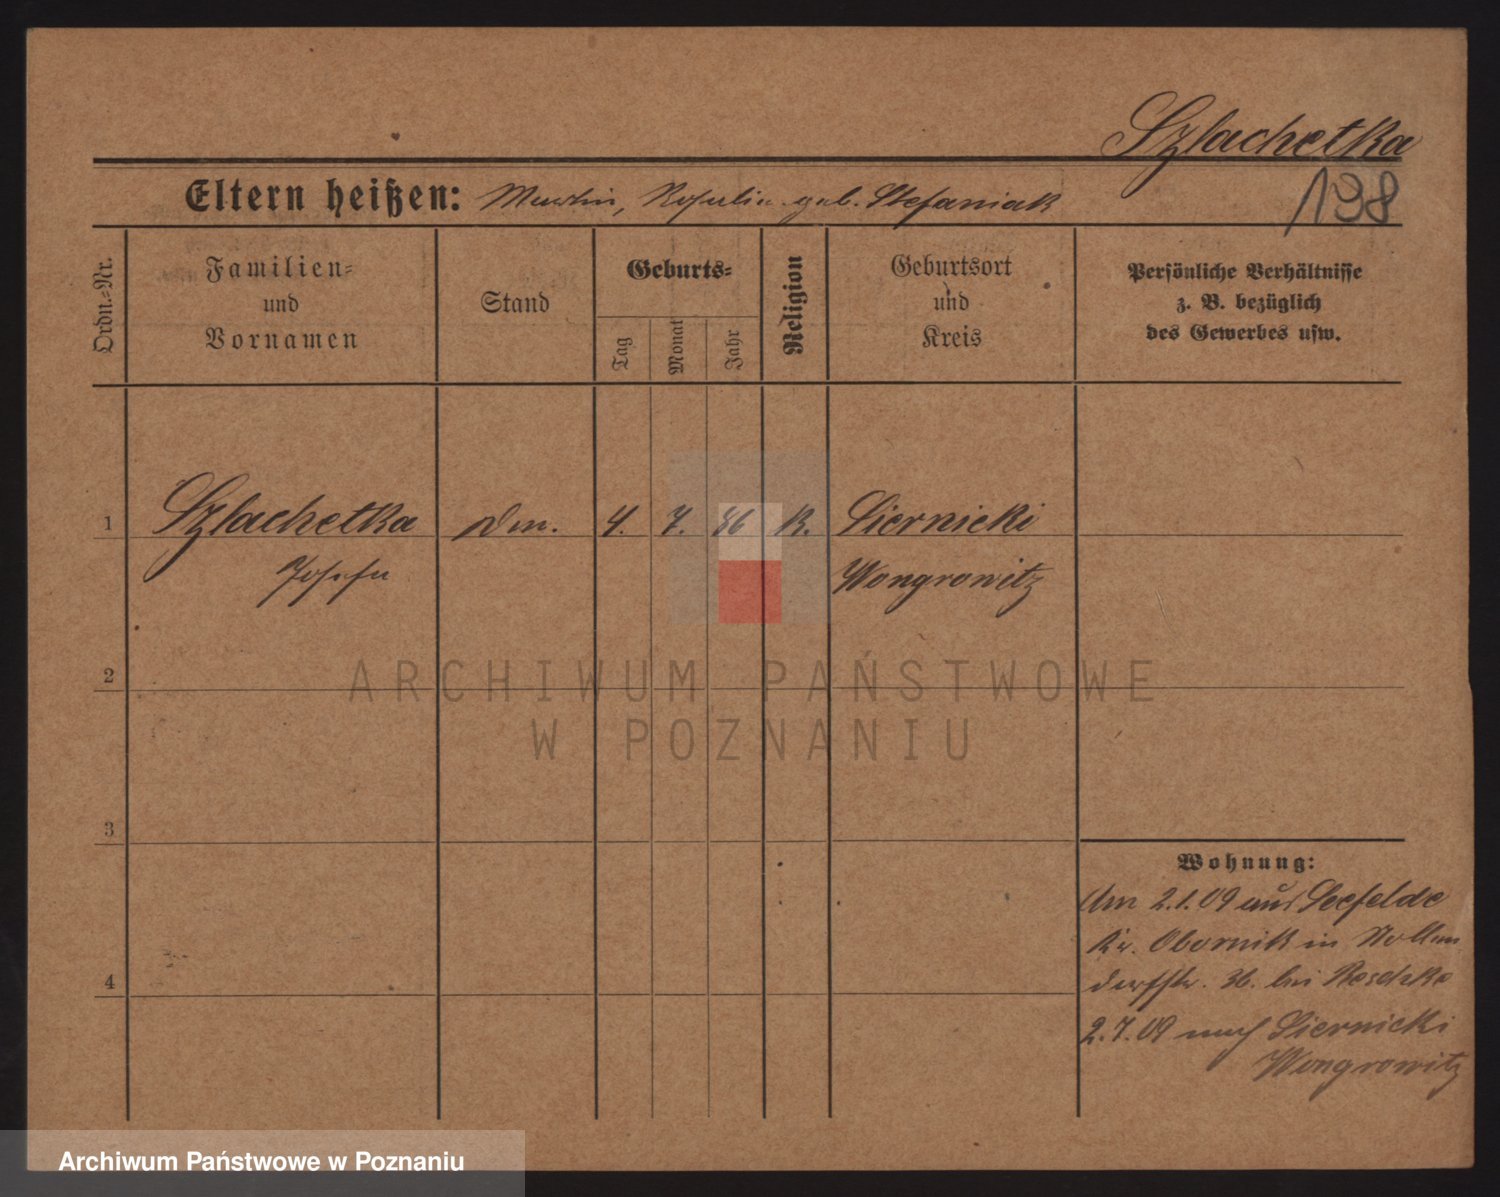 Szlachetka
198
Eltern heißen: Martin, Rosalia geb. Stefaniak
Ordn.-Nr.
Familien-
und
Vornamen
Stand
Geburts-
Tag
Monat
Jahr
Religion
Geburtsort
und
Kreis
Persönliche Verhältnisse
z. B. bezüglich
des Gewerbes usw.
1 Szlachetka 4. 7. 86 K. Siernicki
Josefa Wongrowitz
2
ARCHIWUM PAŃSTWOWE
W POZNANIU
3
Wohnung:
Am 2.1.09 aus Seefelde
Kr. Obornik in Nollen
dorfstr. 36. bei Reschke
4
2.7.09 nach Siernicki
Wongrowitz
Archiwum Państwowe w Poznaniu